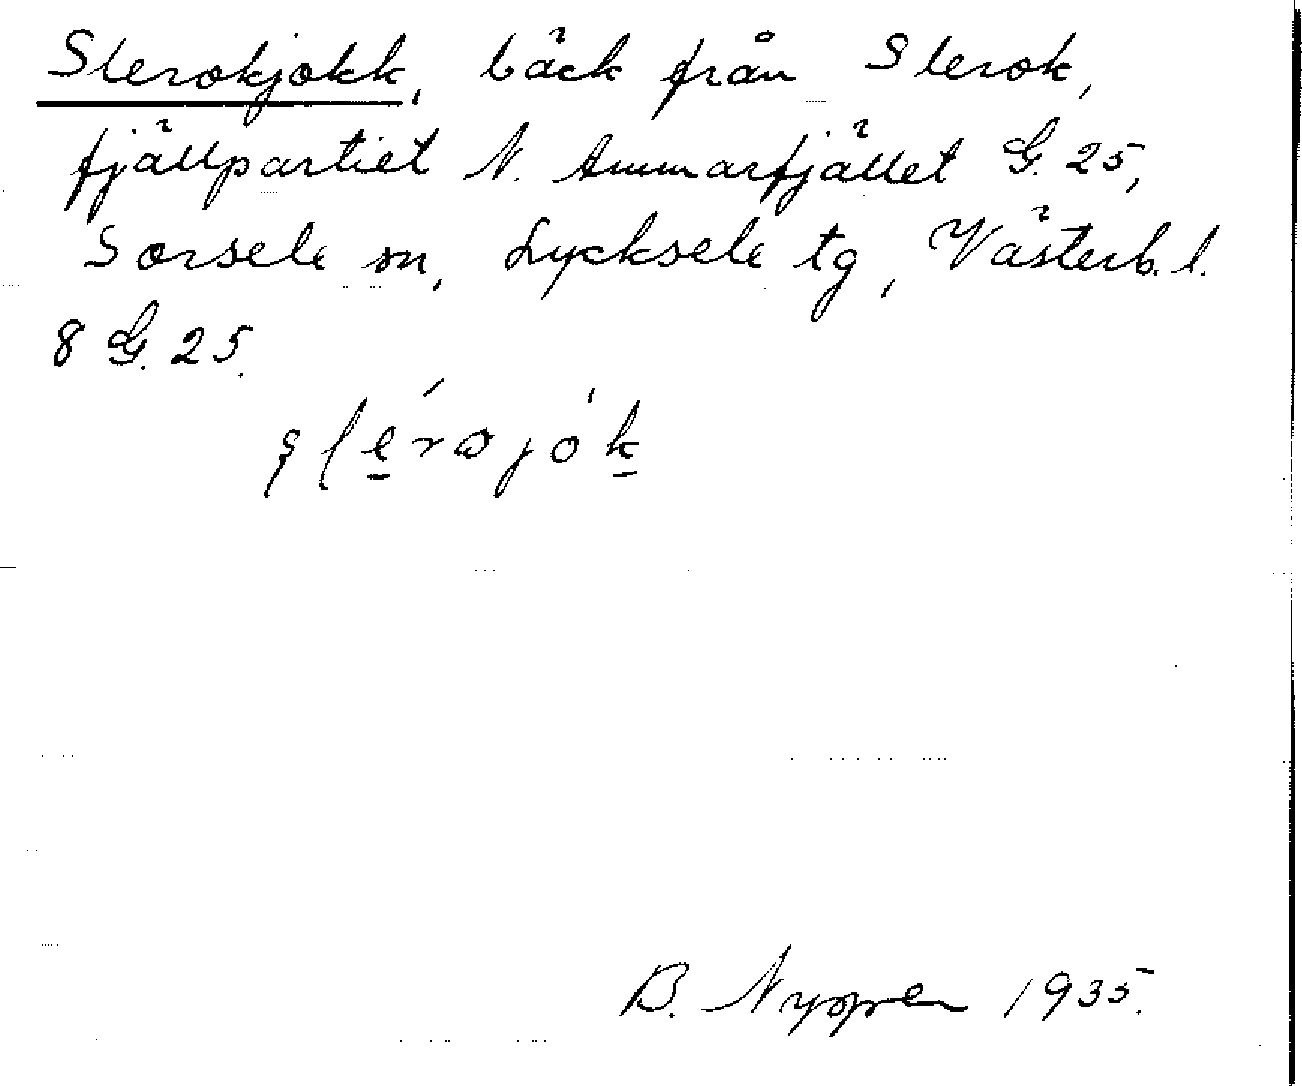 Slerokjokk, bäck från Slerok,
fjällpartiet N. Ammarfjället G. 25,
Sorsele sn, Lycksele tg, Västerb. l.
8 G. 25.
B. 1935.